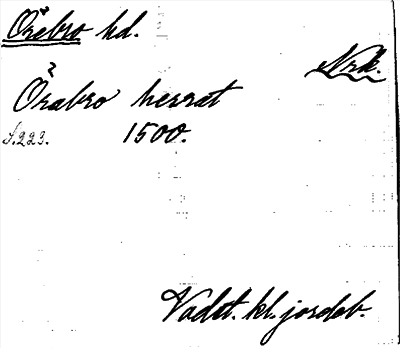 Örebro hd.
Nrk.
Örabro herrat
S.223. 1500.
Vadst. kl. jordeb.